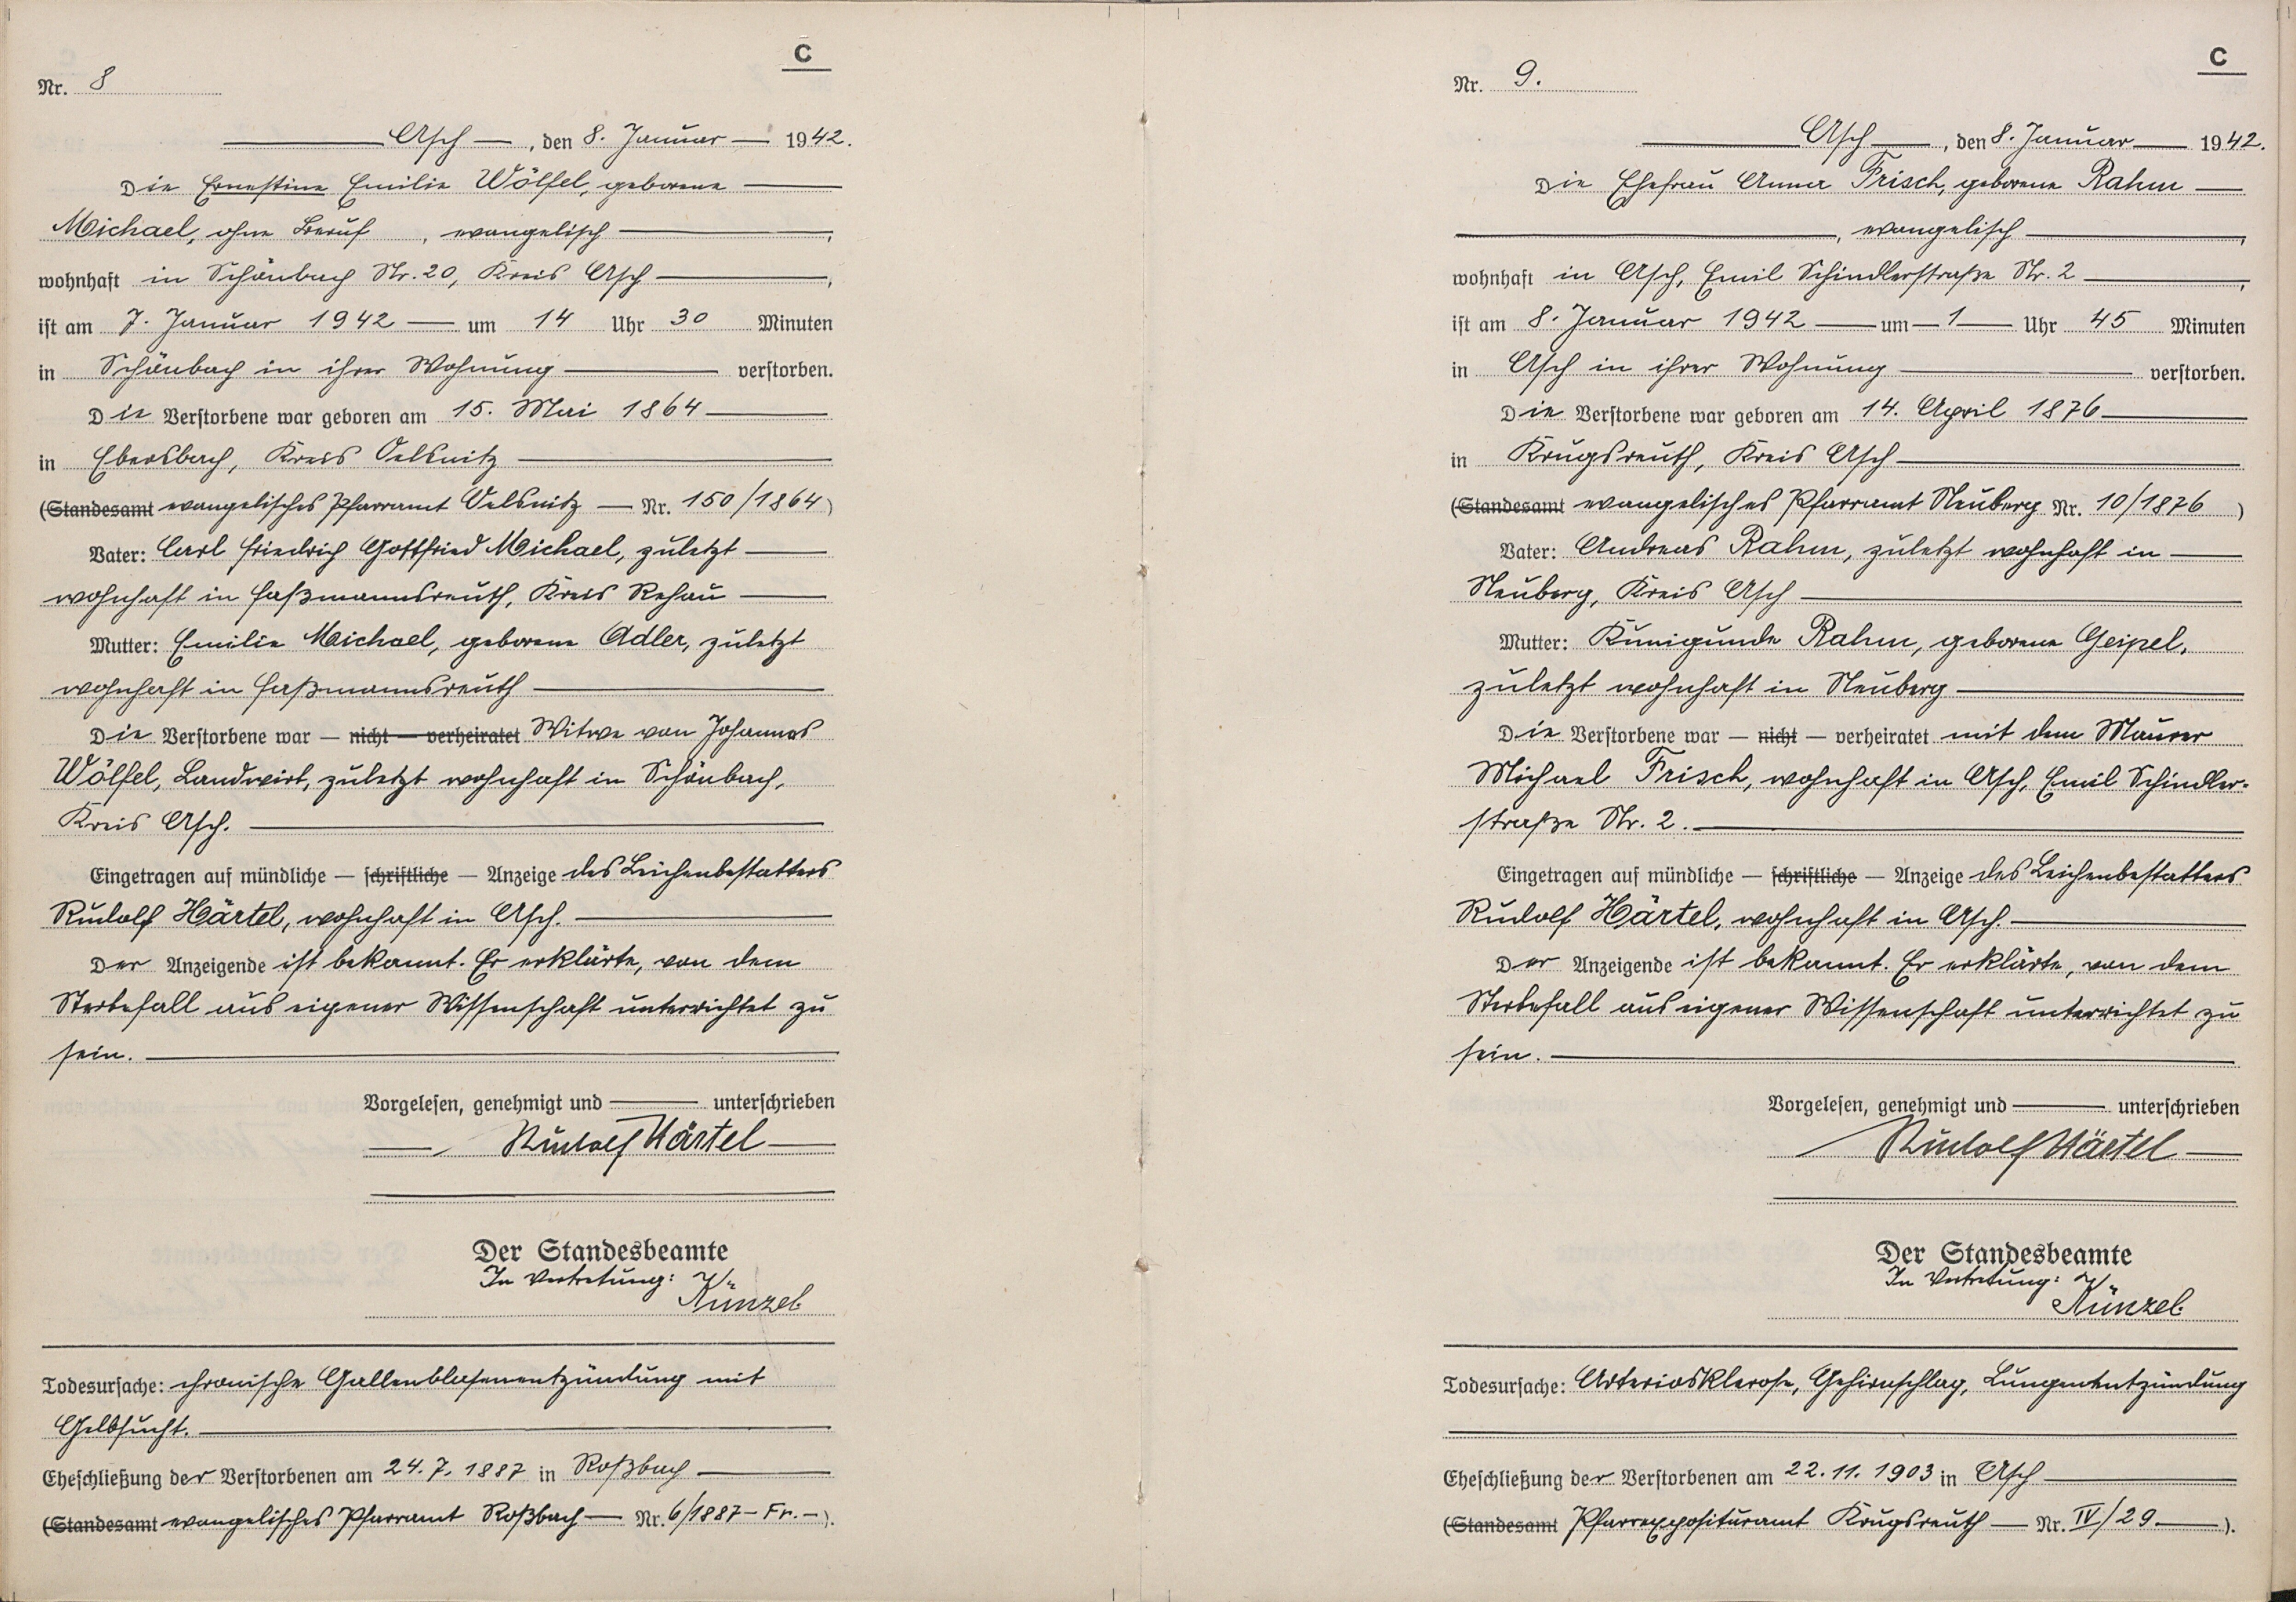 C
Nr. 8
Asch, den 8. Januar 1942.
Die Ernestine Emilie Wölfel, geborene
Michael, ohne Beruf, evangelisch,
wohnhaft in Schönbach Nr. 20, Kreis Asch,
ist am 7. Januar 1942 um 14 Uhr 30 Minuten
in Schönbach in ihrer Wohnung verstorben.
Die Verstorbene war geboren am 15. Mai 1864
in Ebersbach, Kreis Oelsnitz
(Standesamt evangelisches Pfarramt Oelsnitz — Nr. 150/1864)
Vater: Carl Friedrich Gottfried Michael, zuletzt
wohnhaft in Faßmannsreuth, Kreis Rehau
Mutter: Emilie Michael, geborene Adler, zuletzt
wohnhaft in Faßmannsreuth
Die Verstorbene war — nicht — verheiratet Witwe von Johannes
Wölfel, Landwirt, zuletzt wohnhaft in Schönbach,
Kreis Asch.
Eingetragen auf mündliche — schriftliche — Anzeige des Leichenbestatters
Rudolf Härtel, wohnhaft in Asch.
Der Anzeigende ist bekannt. Er erklärte, von dem
Sterbefall aus eigener Wissenschaft unterrichtet zu
sein.
Vorgelesen, genehmigt und unterschrieben
Rudolf Härtel
Der Standesbeamte
In Vertretung:
Künzel
Todesursache: chronische Gallenblasenentzündung mit
Gelbsucht.
Eheschließung der Verstorbenen am 24.7.1887 in Roßbach
(Standesamt evangelisches Pfarramt Roßbach — Nr. 6/1887 - Fr. -).
C
Nr. 9.
Asch, den 8. Januar 1942.
Die Ehefrau Anna Frisch, geborene Rahm
, evangelisch,
wohnhaft in Asch, Emil Schindlerstraße Nr. 2,
ist am 8. Januar 1942 um 1 Uhr 45 Minuten
in Asch in ihrer Wohnung verstorben.
Die Verstorbene war geboren am 14. April 1876
in Krugsreuth, Kreis Asch
(Standesamt evangelisches Pfarramt Neuberg Nr. 10/1876)
Vater: Andreas Rahm, zuletzt wohnhaft in
Neuberg, Kreis Asch
Mutter: Kunigunde Rahm, geborene Geipel,
zuletzt wohnhaft in Neuberg
Die Verstorbene war — nicht — verheiratet mit dem Maurer
Michael Frisch, wohnhaft in Asch, Emil Schindler-
straße Nr. 2.
Eingetragen auf mündliche — schriftliche — Anzeige des Leichenbestatters
Rudolf Härtel, wohnhaft in Asch.
Der Anzeigende ist bekannt. Er erklärte, von dem
Sterbefall aus eigener Wissenschaft unterrichtet zu
sein.
Vorgelesen, genehmigt und unterschrieben
Rudolf Härtel
Der Standesbeamte
In Vertretung:
Künzel
Todesursache: Arteriosklerose, Gehirnschlag, Lungenentzündung
Eheschließung der Verstorbenen am 22.11.1903 in Asch
(Standesamt Pfarrexposituramt Krugsreuth — Nr. IV/29).